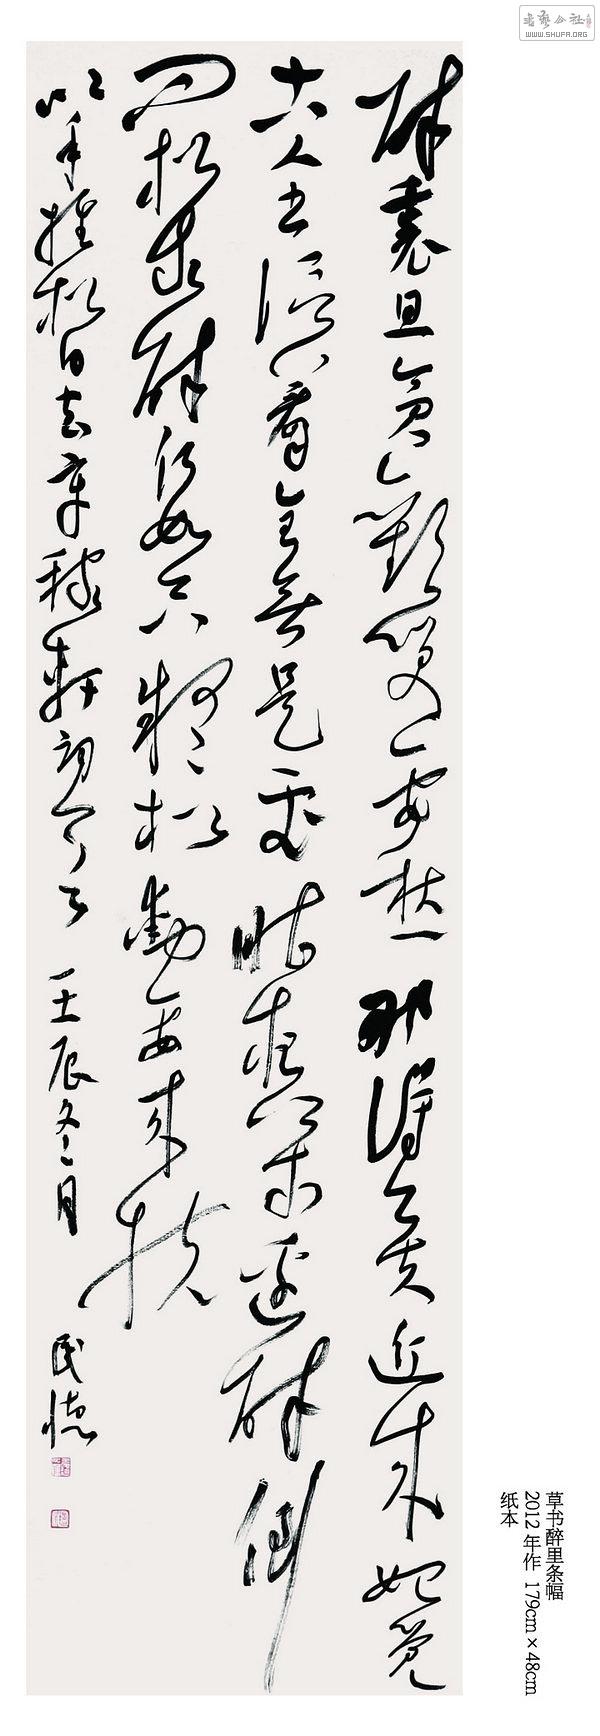 書藝公社
WWW.SHUFA.ORG
醉裏且貪歡笑要愁那得工夫近来始覺
古人书信著全無是處昨夜松邊醉倒
问松我醉何如只疑松動要来扶
以手推松曰去辛稼軒詞 壬辰冬月 民德
草书醉里条幅
2012 年作 179cm×48cm
纸本